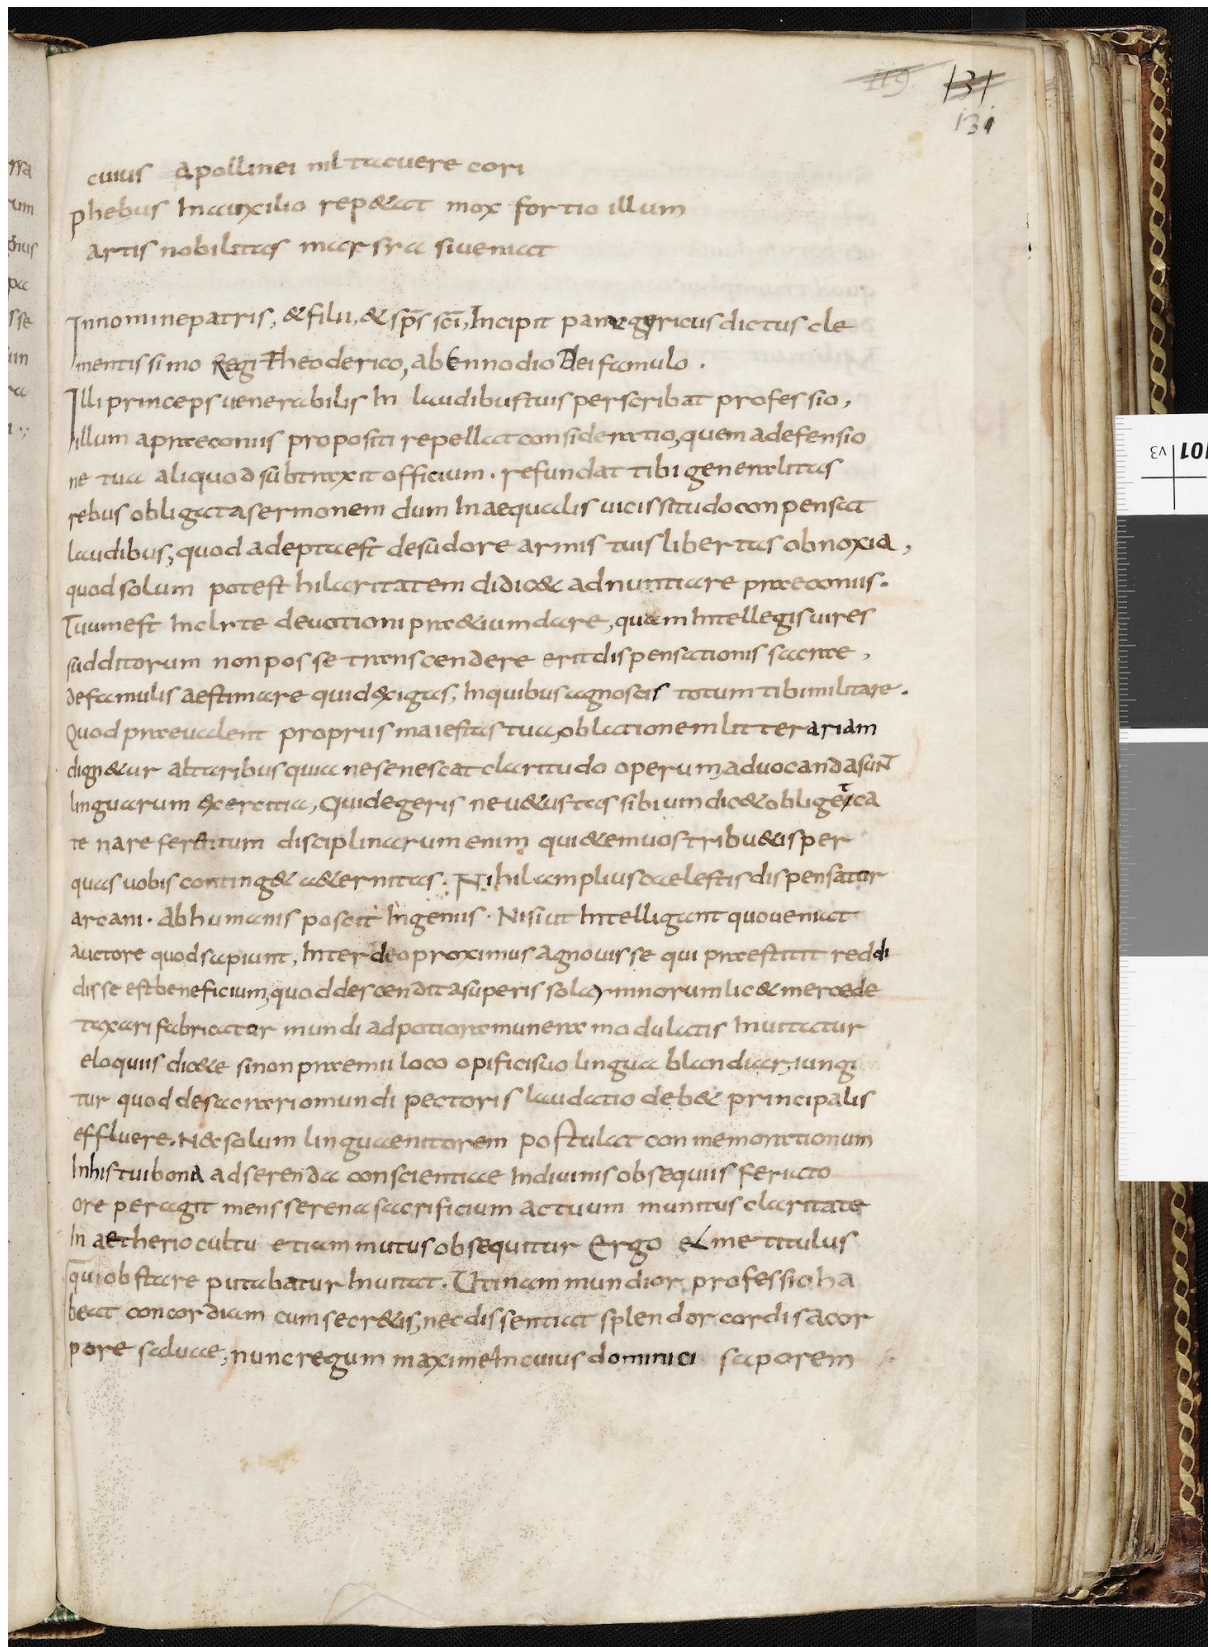 119. 131
131
cuius apollinei nil tacuere cori
phebus Inauxilio rep&at mox fortio illum
artis nobilitas mars sra siueniat
Innominepatris, & filii, & sp̄s sc̄i, Incipit panegyricus dictus cle
mentissimo Regi Theoderico, ab Ennodio Dei famulo.
Illi princeps uenerabilis In laudibus tuis perscribat professio,
illum apraeconiis propositi repellat consideratio, quem adefensio
ne tua aliquod subtraxit officium. refundat tibi generalitas
rebus obligata sermonem dum Inaequalis uicissitudo conpensat
laudibus, quod adepta est desudore armis tuis libertas obnoxia,
quod solum potest hilaritatem didic& adnuntiare praeconiis.
Tuum est Inclite deuotioni pr&ium dare, quam Intellegis uires
subditorum non posse transcendere erit dispensationis sacrae,
defamulis aestimare quid exigas, Inquibus agnoscis totum tibi militare.
Quod praeualent propriis maiestas tua, oblationem litterariam
dign&ur altaribus quia ne senescat claritudo operum, aduocanda sunt
linguarum exercitia, Quidegeris ne u&ustas sibi uindic& obliget, ca
te nare feretitum disciplinarum enim qui&em uos tribu&is per
quas uobis conting& a&ernitas. Nihil amplius caelestis dispensatur
arcani. Ab humanis poscit Ingeniis. Nisi ut Intelligant quo ueniat
auctore quod sapiunt, Inter deo proximus agnouisse qui praestitit reddi
disse est beneficium, quod descendit asuperis sola, minorum lic& mercede
taxari fabricator mundi adpotiora munera modulatis Inuitatur
eloquiis dic&e sinon praemii loco opifici suo lingua blandiar, iungi
tur quod desacrario mundi pectoris laudatio deb& principalis
effluere. N& solum linguae nitorem postulat conmemorationum
Inhis tui bona adserenda conscientiae Indiuinis obsequiis feriato
ore peragit mens serena sacrificium actuum munitus claritate
In aetherio cultu etiam mutus obsequitur Ergo et me titulus
qui obstare putabatur Inuitat. Utinam mundior professio ha
beat concordiam cum secr&is, nec dissentiat splendor cordis acor
pore saluae, nunc regum maxime Incuius dominici saporem